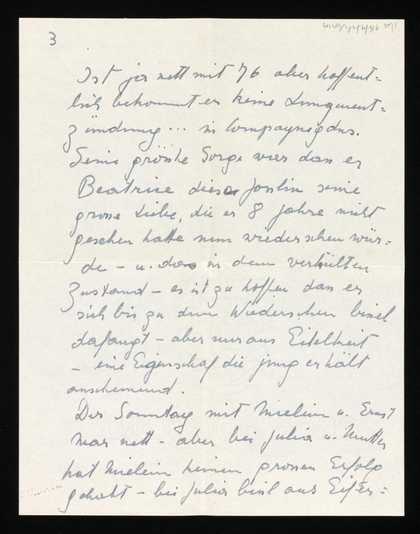 3
Ist ja nett mit 76 aber hoffent=
lich bekommt er keine Lungenent=
zündung... in Compaynigdns.
Seine grösste Sorge war dass er
Beatrice diese Joslin seine
grosse Liebe, die er 8 Jahre nicht
gesehen hatte nun wiedersehen wür=
de - u. das in dem verhüllten
Zustand - es ist zu hoffen dass er
sich bis zu dem Wiedersehen bissl
dafangt - aber nur aus Eitelkeit
- eine Eigenschaft die jung erhält
anscheinend.
Der Sonntag mit Mielein u. Ernst
war nett - aber bei Julia u. Mutter
hat Mielein keinen grossen Erfolg
gehabt - bei Julia bissl aus Eifer=